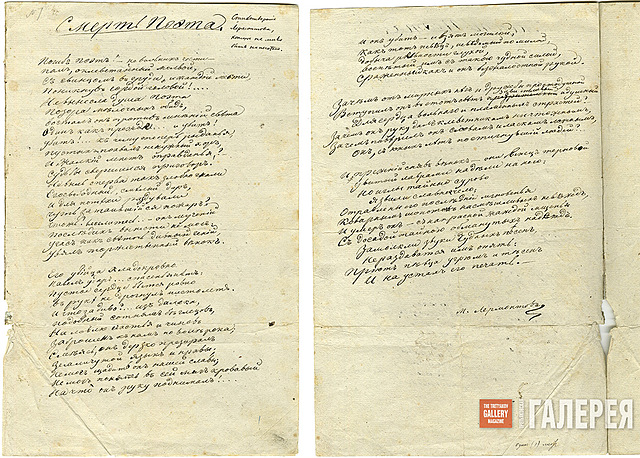 Смерть Поэта.
Стихотвореніе
Лермонтова,
Погибъ Поэтъ — невольникъ чести
Палъ, оклеветанный молвой,
Съ свинцомъ въ груди, и жаждой мести
Поникнувъ гордой головой!....
Не вынесла душа Поэта
Позора мелочныхъ обидъ,
Возсталъ онъ противъ мнѣній свѣта
Одинъ какъ прежде.... и убитъ!
Убитъ!... къ чему теперь рыданья
Пустыхъ похвалъ ненужный хоръ,
И жалкій лепетъ оправданья!
Судьбы свершился приговоръ.
Не вы ль сперва такъ злобно гнали
Его свободный, смѣлый даръ,
И для потѣхи раздували
Чуть затаившійся пожаръ?
Чтожъ? веселитесь.... онъ мученій
Послѣднихъ вынести не могъ,
Угасъ какъ свѣточъ дивный геній
Увялъ торжественный вѣнокъ.
Его убійца хладнокровно
Навелъ ударъ.... спасенья нѣтъ:
Пустое сердце бьется ровно
Въ рукѣ не дрогнулъ пистолетъ.
И что за диво?... изъ далека,
Подобный сотнямъ бѣглецовъ,
На ловлю счастья и чиновъ
Заброшенъ къ намъ по волѣ рока;
Смѣясь, онъ дерзко презиралъ
Земли чужой языкъ и нравы;
Не могъ щадить онъ нашей славы;
Не могъ понять въ сей мигъ кровавый
На что онъ руку поднималъ!....
И онъ убитъ — и взятъ могилой,
Какъ тотъ пѣвецъ, невѣдомый но милый
Добыча ревности глухой,
Воспѣтый имъ съ такою чудной силой,
Сраженный какъ и онъ безжалостной рукой.
Зачѣмъ отъ мирныхъ нѣгъ и дружбы простодушной
Вступилъ онъ въ этотъ свѣтъ завистливый и душный
Для сердца вольнаго и пламенныхъ страстей?
Зачѣмъ онъ руку далъ клеветникамъ ничтожнымъ,
Зачѣмъ повѣрилъ онъ словамъ и ласкамъ ложнымъ,
Онъ, съ юныхъ лѣтъ постигнувшій людей?..
И прежній снявъ вѣнокъ — они вѣнецъ терновый
Увитый лаврами надѣли на него;
Но иглы тайныя сурово
Язвили славное чело,
Отравленъ его послѣднія мгновенья
Коварнымъ шопотомъ насмѣшливыхъ невѣждъ,
И умеръ онъ — съ напрасной жаждой мщенья
Съ досадой тайною обманутыхъ надеждъ,
Замолкли звуки чудныхъ пѣсенъ,
Не раздаваться имъ опять:
Пріютъ пѣвца угрюмъ и тѣсенъ
И на устахъ его печать. —
М. Лермонтовъ
THE TRETYAKOV
GALLERY
MAGAZINE
ГАЛЕРЕЯ